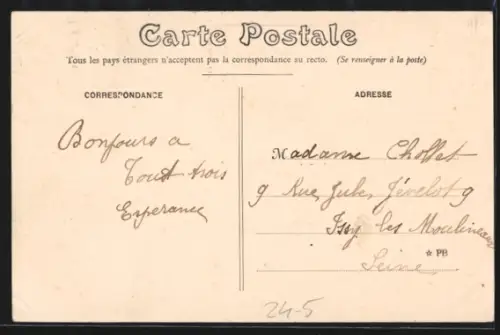 Carte Postale
Tous les pays étrangers n'acceptent pas la correspondance au recto. (Se renseigner à la poste)
CORRESPONDANCE
ADRESSE
Bonjours a
tout trois
Esperance
Madame Chollet
9 Rue Jules Gévelot 9
Issy les Moulineaux
* PB
Seine
24-5